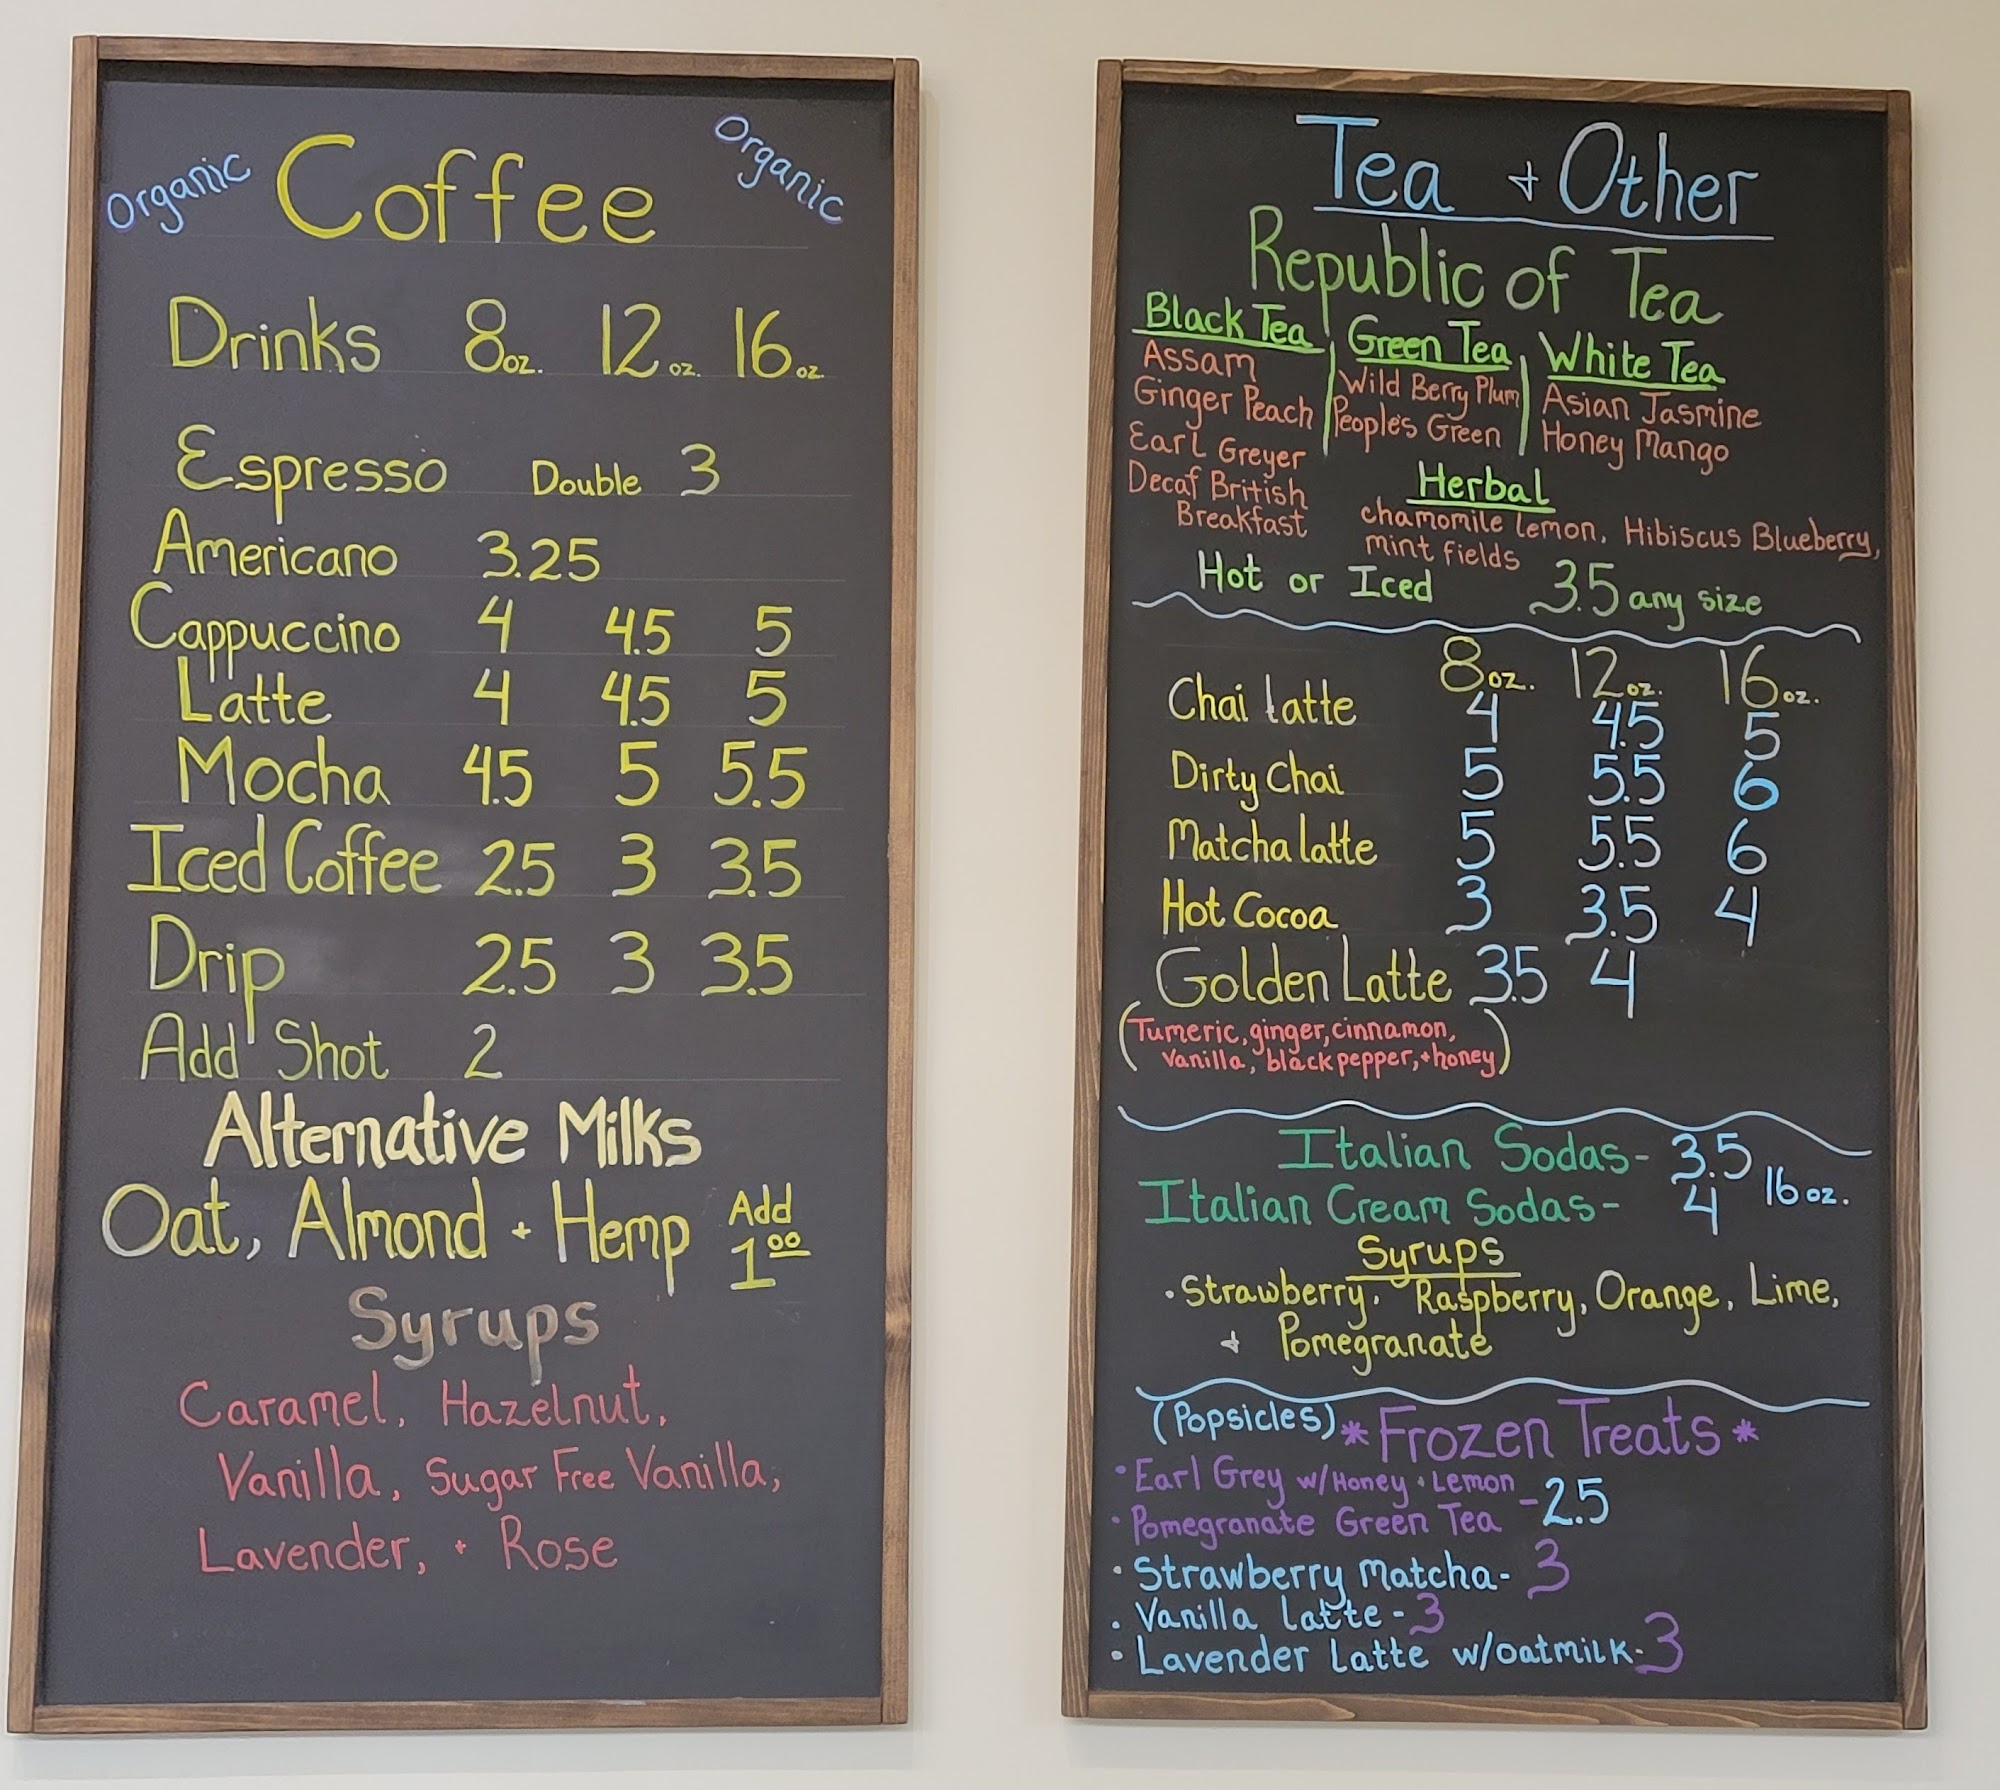 Organic Coffee Organic
Drinks 8oz. 12oz. 16oz.
Espresso Double 3
Americano 3.25
Cappuccino 4 4.5 5
Latte 4 4.5 5
Mocha 4.5 5 5.5
Iced Coffee 2.5 3 3.5
Drip 2.5 3 3.5
Add Shot 2
Alternative Milks
Oat, Almond + Hemp Add 1.00
Syrups
Caramel, Hazelnut,
Vanilla, Sugar Free Vanilla,
Lavender, + Rose
Tea + Other
Republic of Tea
Black Tea
Assam
Ginger Peach
Earl Greyer
Decaf British
Breakfast
Green Tea
Wild Berry Plum
People's Green
White Tea
Asian Jasmine
Honey Mango
Herbal
chamomile lemon, Hibiscus Blueberry,
mint fields
Hot or Iced 3.5 any size
8oz. 12oz. 16oz.
Chai Latte 4 4.5 5
Dirty Chai 5 5.5 6
Matcha latte 5 5.5 6
Hot Cocoa 3 3.5 4
Golden Latte 3.5 4
(Tumeric, ginger, cinnamon,
vanilla, black pepper, + honey)
Italian Sodas- 3.5
Italian Cream Sodas- 4 16oz.
Syrups
• Strawberry, Raspberry, Orange, Lime,
+ Pomegranate
(Popsicles) *Frozen Treats*
• Earl Grey w/Honey + Lemon
• Pomegranate Green Tea -2.5
• Strawberry Matcha- 3
• Vanilla Latte - 3
• Lavender Latte w/oatmilk- 3